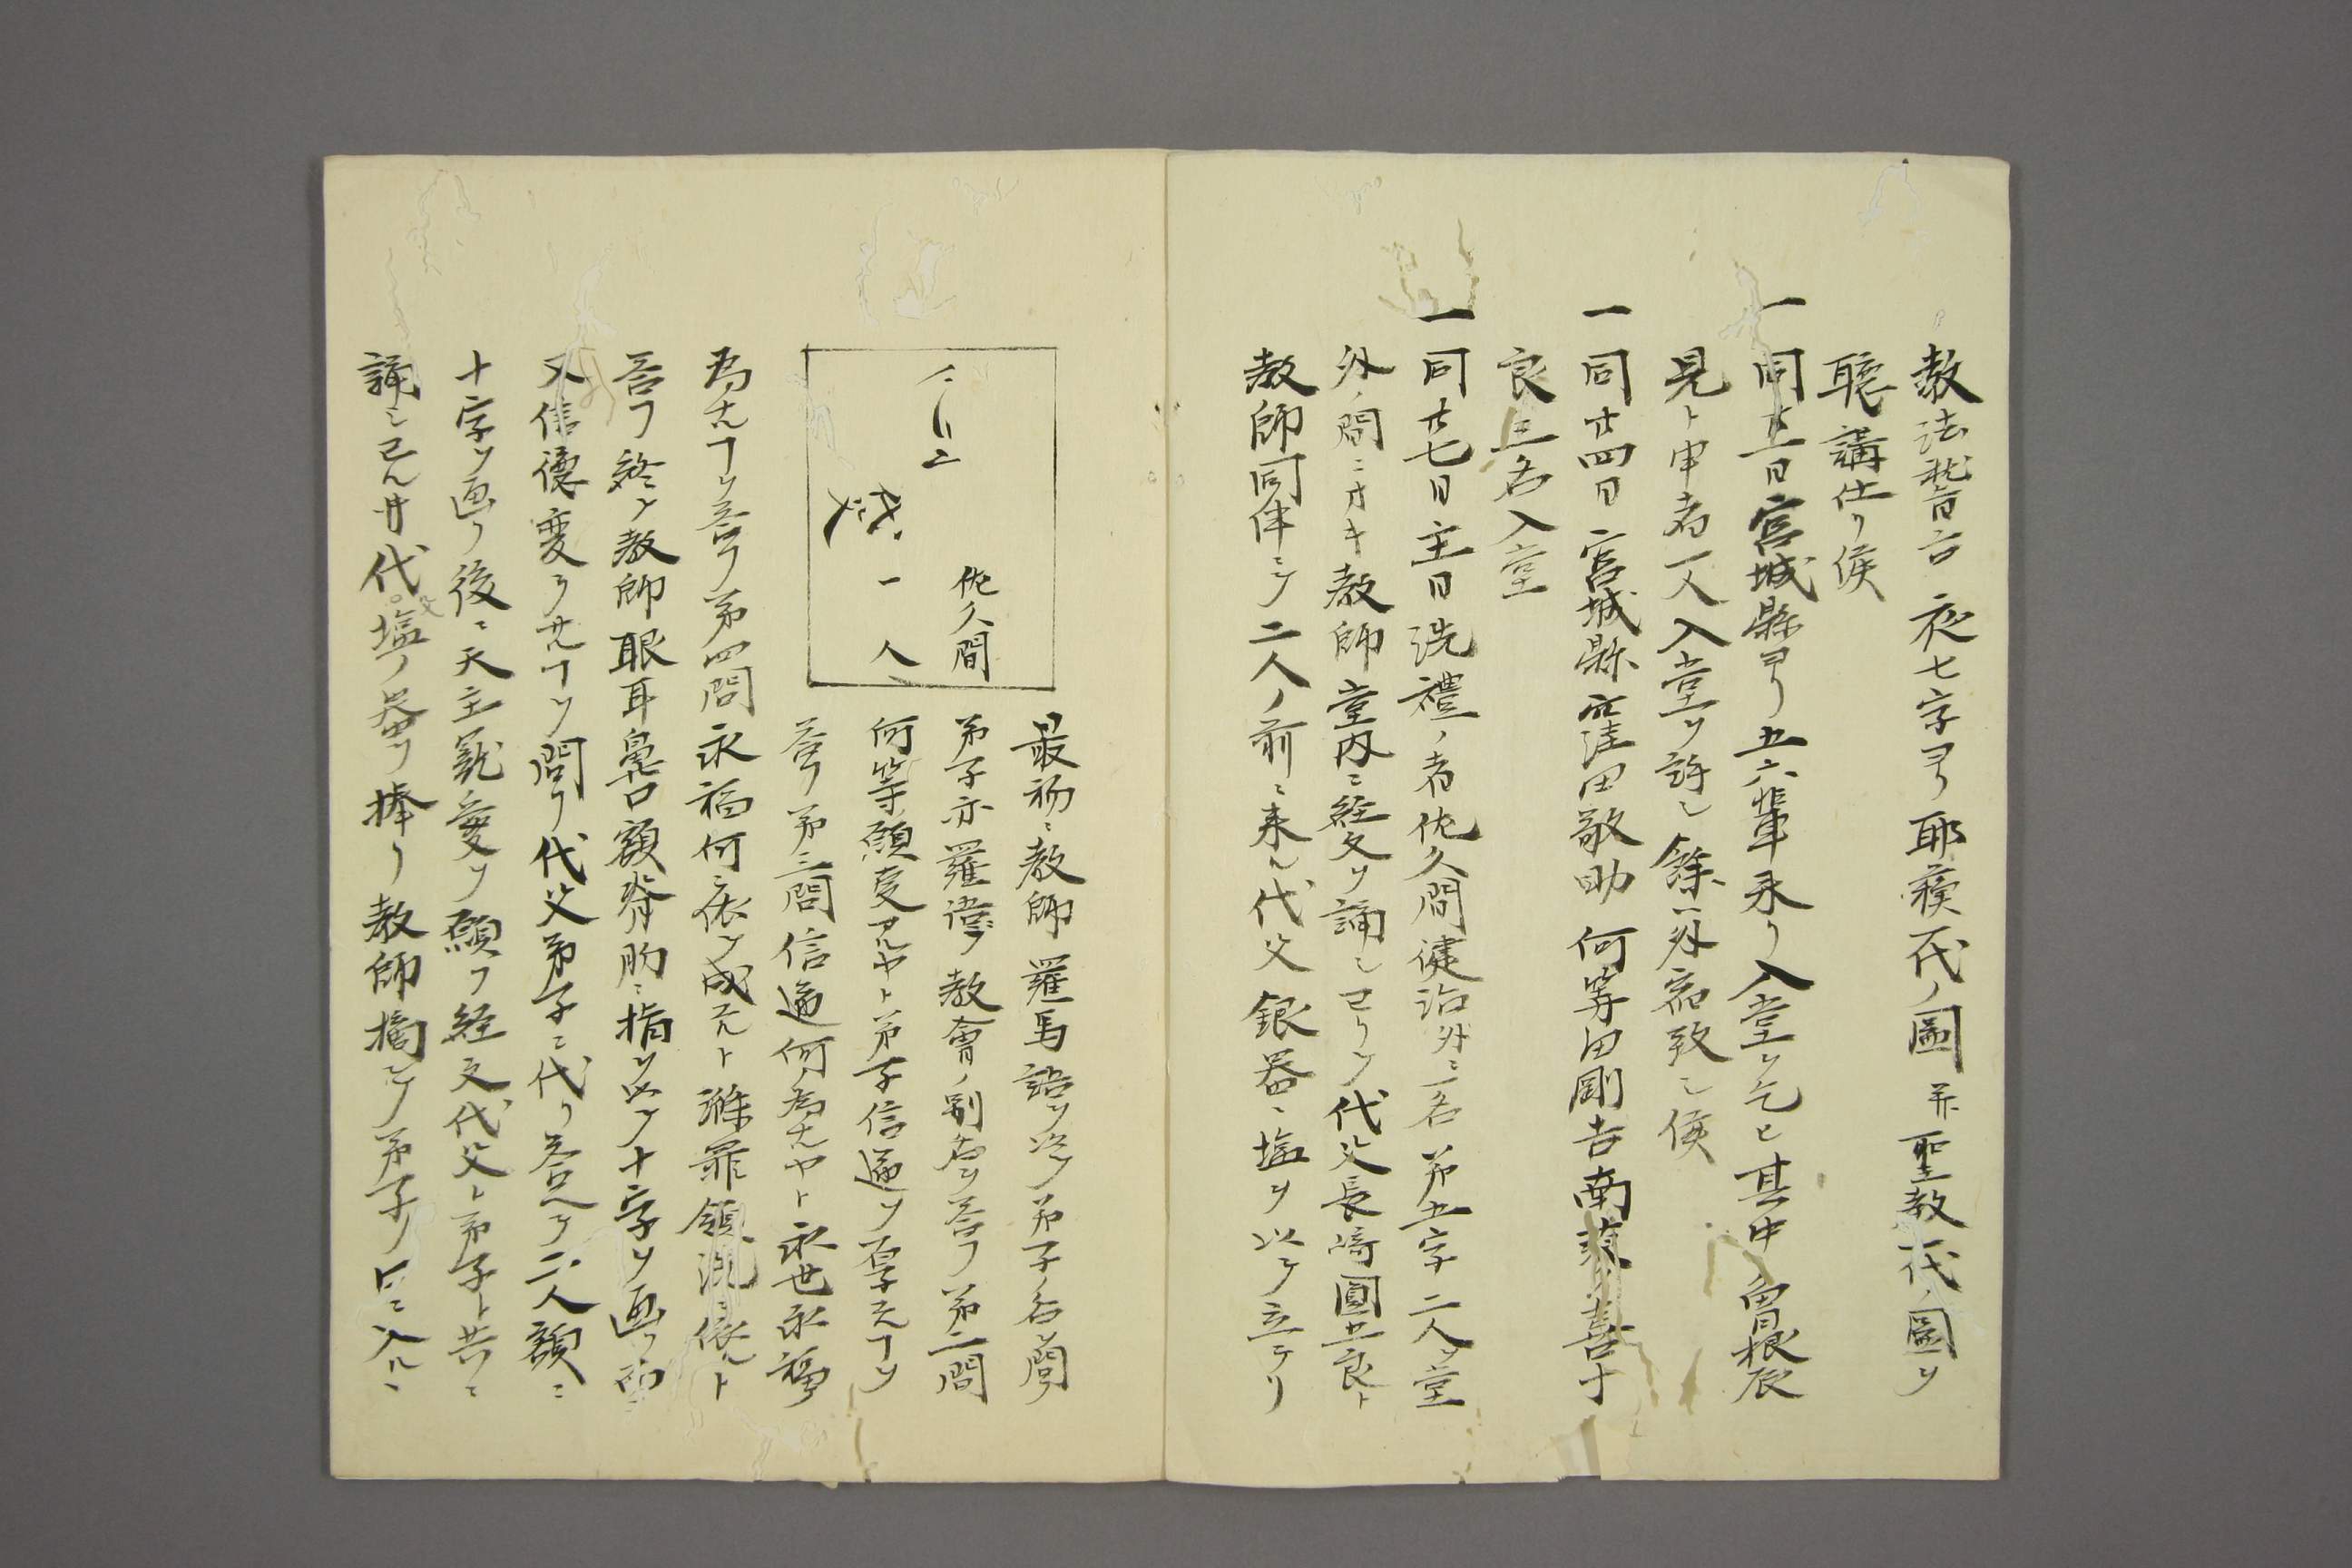 教法警言 夜七字ヨリ耶蘓一代ノ圖并聖教一代ノ圖ヲ
聴講仕リ候
一同廿一日宮城縣ヨリ五六輩来リ入堂ヲ乞ヒ其中曽根辰
見ト申者一人入堂ヲ許シ餘ハ外宿致シ候
一同廿四日宮城縣窪田敬助 何等田剛吉南菉喜十
良三名入堂
一同廿七日主日洗禮ノ者佐久間健治外ニ一名第五字二人ヲ堂
外ノ間ニオキ教師堂内ニ経文ヲ誦シ已リヽ代父長﨑圓五良ト
教師同伴シテ二人ノ前ニ来ル代父銀器ニ塩ヲ以テ立テリ
佐久間
一人
最初ニ教師羅馬語ヲ以テ弟子ノ名ヲ問フ
弟子亦羅律ノ教會ノ別名ヲ答フ第二問
何等願望アルヤト弟子信通ヲ願フコヲ
答フ第三問信通何ノ為ナルヤト永世永福ノ
為ナルコヲ答フ第四問永福何ニ依テ成スルト滌罪領洗ニ依ルト
答フ終テ教師眼耳鼻口額脊胸ニ指ヲ以テ十字ヲ画ク而シテ
又信徳変ラサルコヲ問フ代父弟子ニ代リ答ヘテ二人額ニ
十字ヲ画ク後ニ天主寵愛ヲ願フ経文代父ト弟子ト共ニ
誦シ已ル廿代父塩ノ器ヲ捧ク教師摘テ弟子ノ口ニ入ルニ